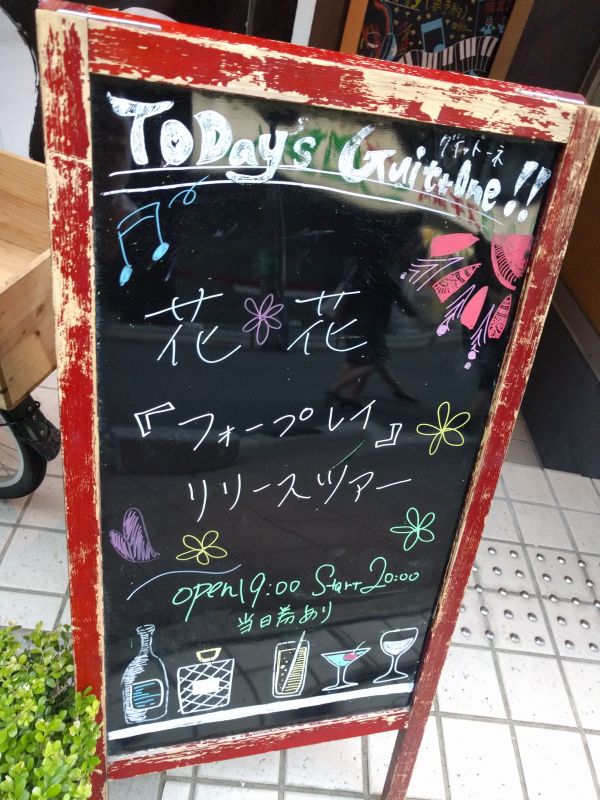 グギットーネ
ToDay's GuittOne!!
花花
『フォープレイ』
リリースツアー
open19:00 Start20:00
当日券あり